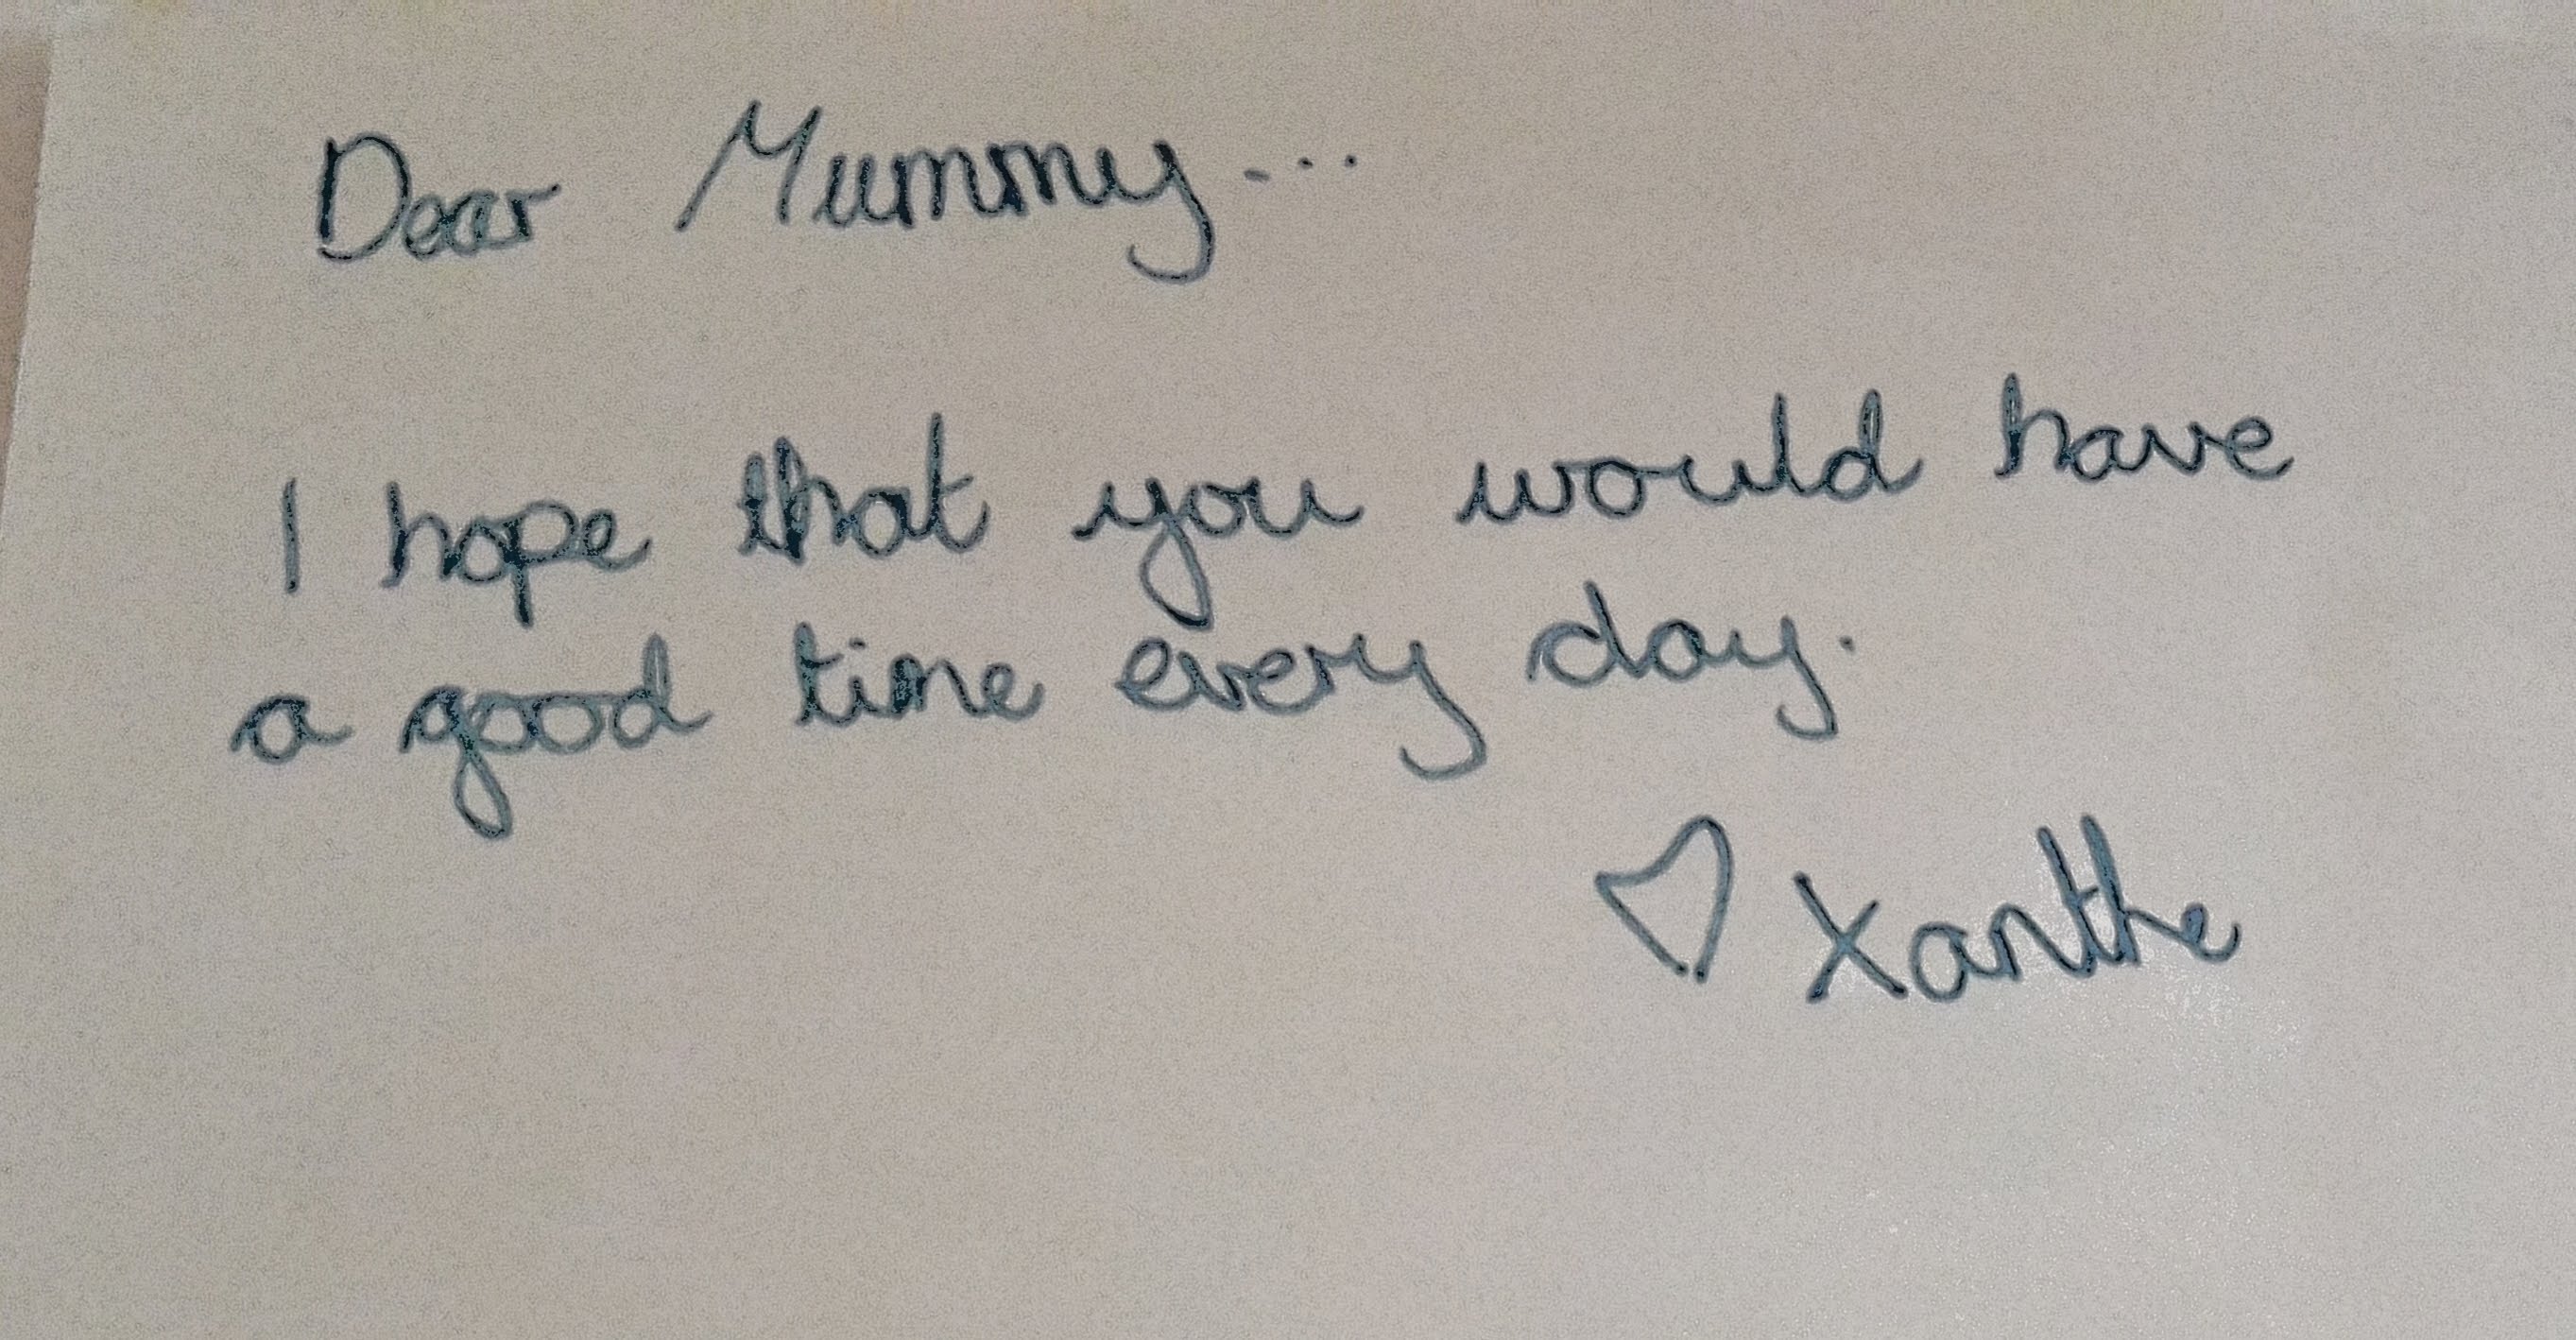 Dear Mummy...
I hope that you would have
a good time every day.
♡ Xanthe